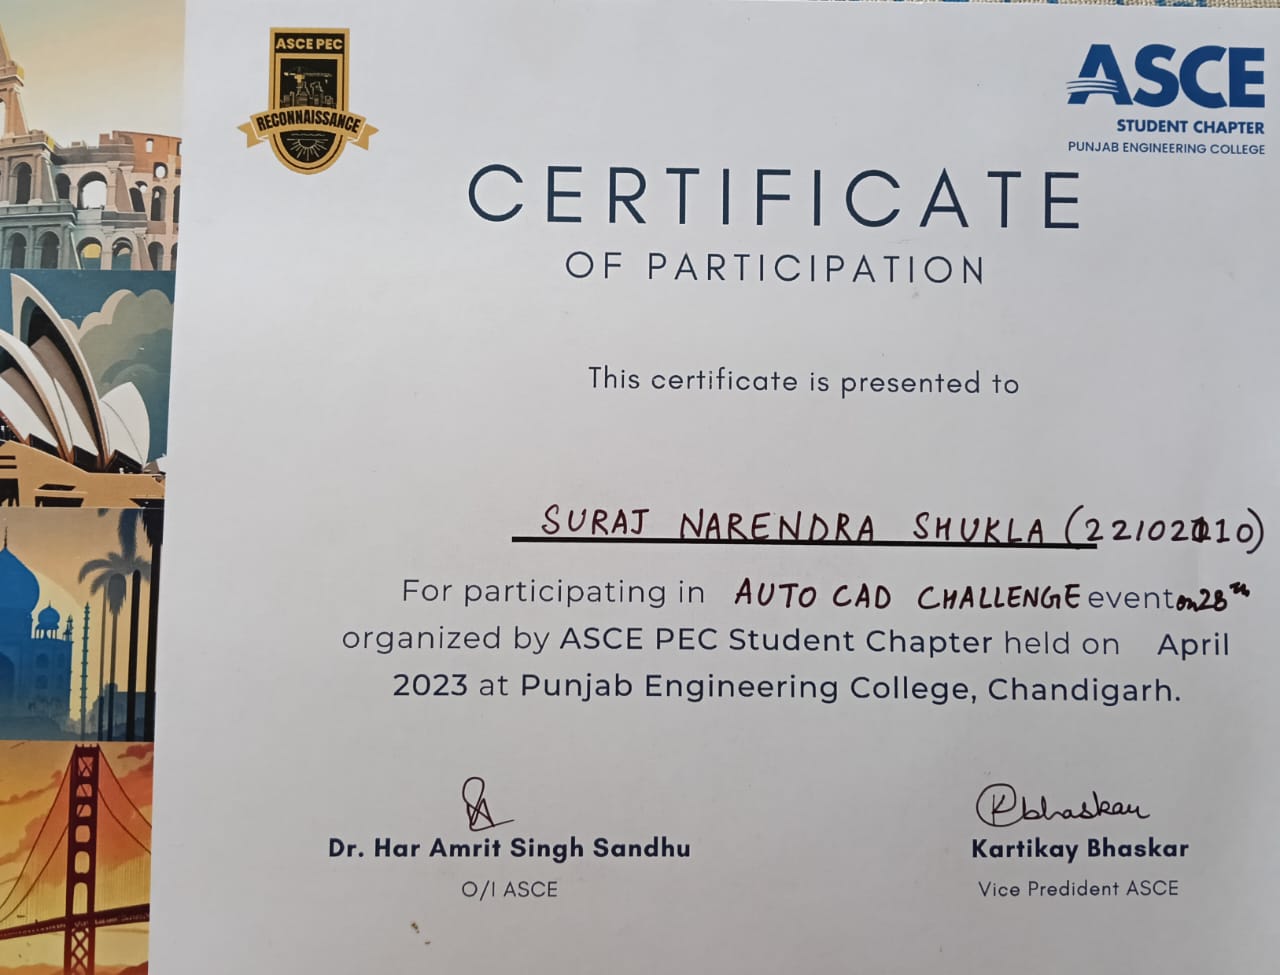 ASCE PEC
RECONNAISSANCE
ASCE
STUDENT CHAPTER
PUNJAB ENGINEERING COLLEGE
CERTIFICATE
OF PARTICIPATION
This certificate is presented to
SURAJ NARENDRA SHUKLA
For participating in AUTO CAD CHALLENGE event on 28th
organized by ASCE PEC Student Chapter held on April
2023 at Punjab Engineering College, Chandigarh.
Kbhaskar
Dr. Har Amrit Singh Sandhu
Kartikay Bhaskar
O/I ASCE
Vice Predident ASCE